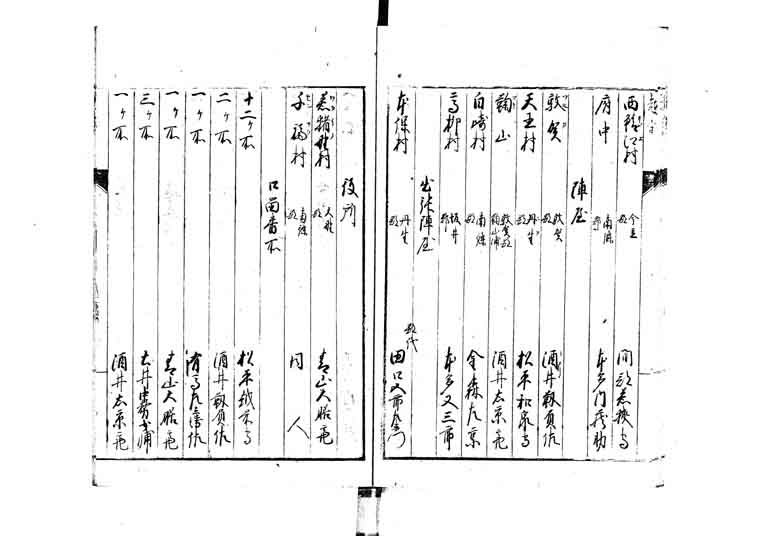 西鯖江村 今立郡 間部若狭守
府中 南条郡 本多門之助
陣屋
敦賀 敦賀郡 酒井靱負佐
天王村 丹生郡 松平和泉守
鞠山 敦賀郡鞠山浦 酒井右京亮
白崎村 南條郡 金森左京
高柳村 坂井郡 本多又三郎
出張陣屋
本保村 丹生郡 郡代 田口五郎左衛門
役所
若猪野村 大野郡 青山大膳亮
千福村 南條郡 同人
口留番所
十二ヶ所 松平越前守
二ヶ所 酒井靱負佐
一ヶ所 有馬左兵衛佐
一ヶ所 青山大膳亮
三ヶ所 土井
一ヶ所 酒井右京亮